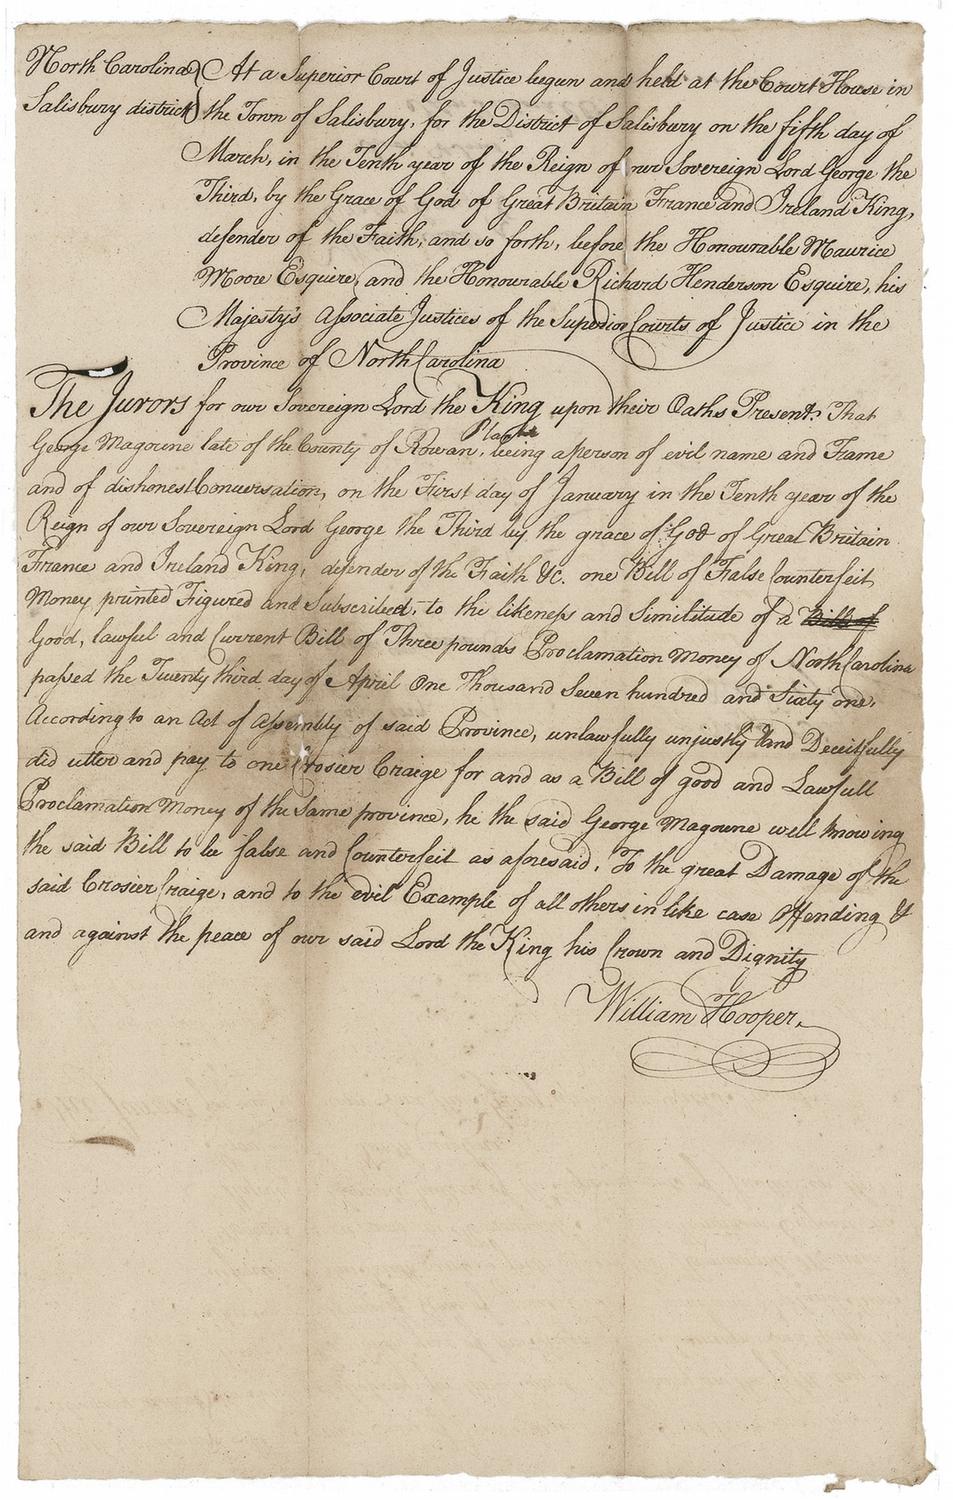 North Carolina } At a Superior Court of Justice begun and held at the Court House in
Salisbury district } the Town of Salisbury, for the District of Salisbury on the fifth day of
March, in the Tenth year of the Reign of our Sovereign Lord George the
Third, by the Grace of God of Great Britain France and Ireland King,
defender of the Faith, and so forth, before the Honourable Maurice
Moore Esquire, and the Honourable Richard Henderson Esquire, his
Majesty's Associate Justices of the Superior Courts of Justice in the
Province of North Carolina
The Jurors for our Sovereign Lord the King upon their Oaths Present. That
George Magoune late of the County of Rowan, being a person of evil name and Frame
and of dishonest Conversation, on the First day of January in the Tenth year of the
Reign of our Sovereign Lord George the Third by the grace of God of Great Britain
France and Ireland King, defender of the Faith &c. one Bill of False Counterfeit
Money printed Figured and Subscribed, to the likeness and Similitude of a Bill of
Good, lawful and Current Bill of Three pounds Proclamation Money of North Carolina
passed the Twenty third day of April One Thousand Seven hundred and Sixty one,
According to an Act of Assembly of said Province, unlawfully unjustly and Deceitfully
did utter and pay to one Crosier Craige for and as a Bill of good and Lawfull
Proclamation Money of the Same province, he the said George Magoune well knowing
the said Bill to be false and Counterfeit as aforesaid, To the great Damage of the
said Crosier Craige, and to the evil Example of all others in like case Offending &
and against the peace of our said Lord the King his Crown and Dignity
William Hooper.